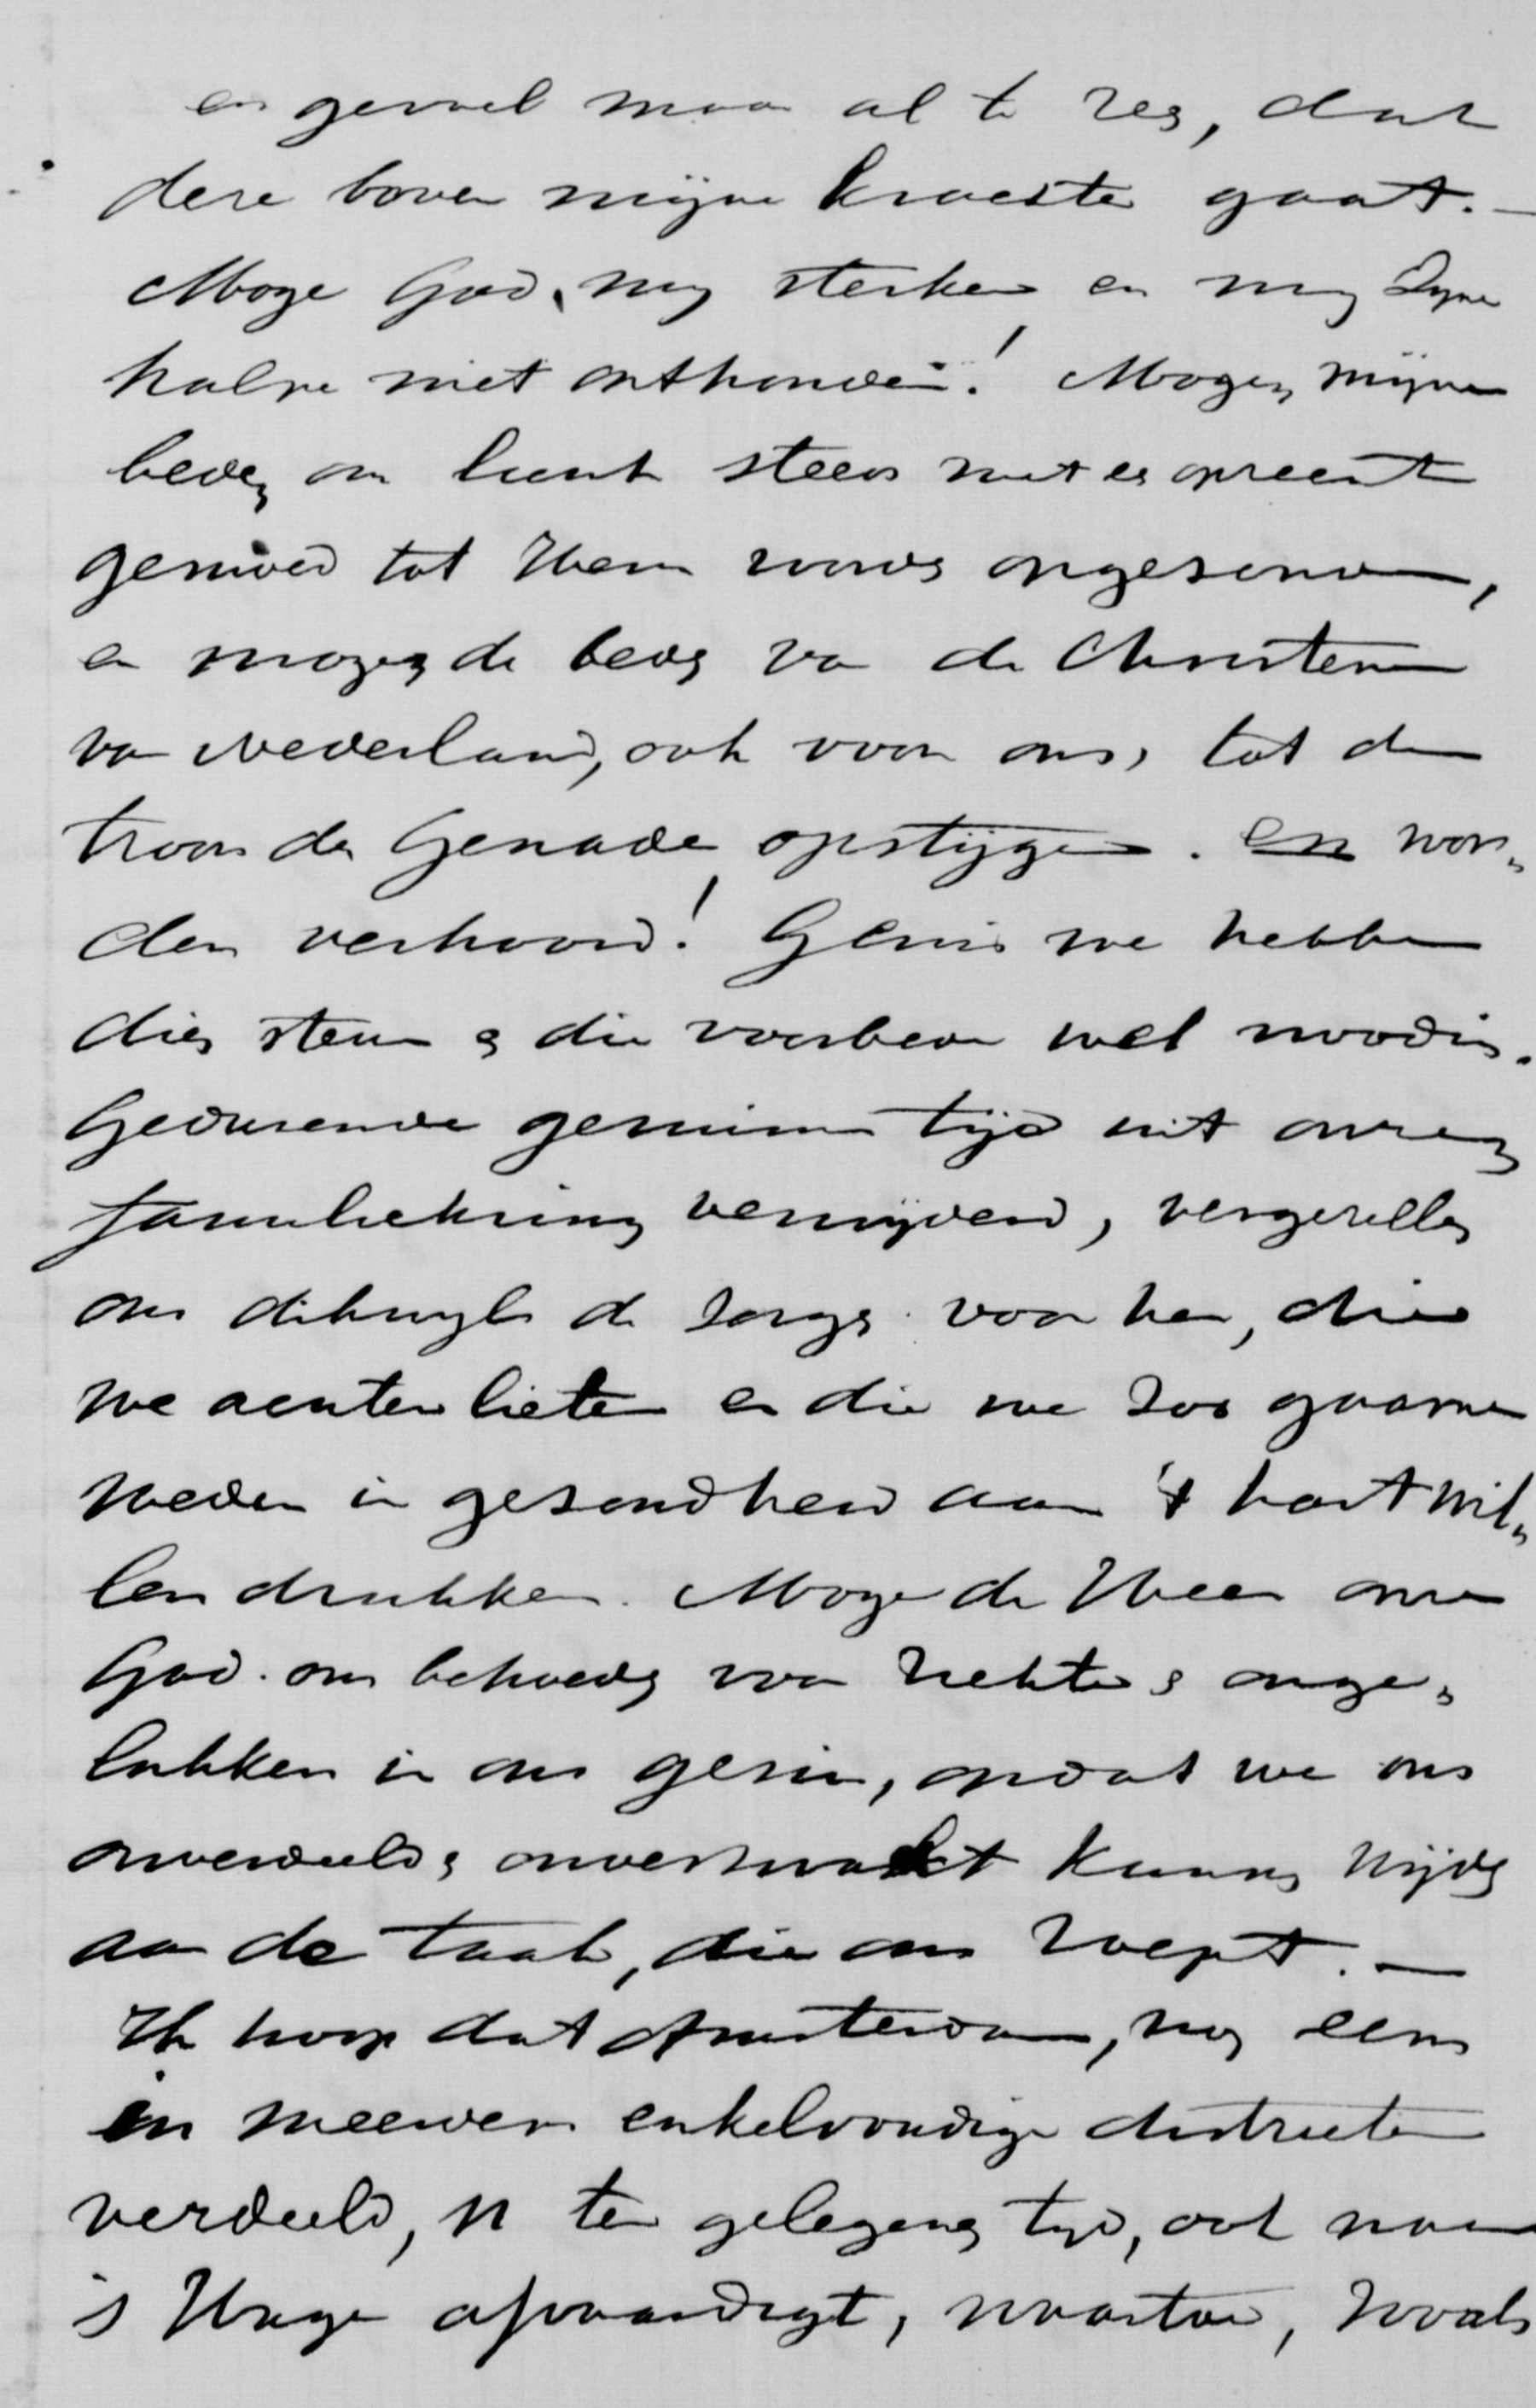 en gevoel maar al te zeer, dat
deze boven mijne krachten gaat. —
Moge God mij sterken en mij Zijne
hulpe niet onthouden! Mogen mijne
beden om licht steeds met een oprecht
gemoed tot Hem worden opgezonden,
en mogen de beden van de Christenen
van Nederland, ook voor ons, tot den
troon der Genade opstijgen. en wor„
den verhoord! Gewis we hebben
dien steun en die voorbeden wel noodig.
Gedurende geruimen tijd uit onzen
familiekring verwijderd, vergezellen
ons dikwijls de zorgen voor hen, die
we achterlieten en die we zoo gaarne
weder in gezondheid aan 't hart wil„
len drukken. Moge de Heer onze
God ons behoeden voor ziekten en onge„
lukken in ons gezin, opdat we ons
onverdeeld en onverzwakt kunnen wijden
aan de taak, die ons roept. —
Ik hoop dat Amsterdam, nog eens
in meerdere enkelvoudige districten
verdeeld, U ten gelegenen tijd, ook naar
's Hage afvaardigt, waartoe, zooals